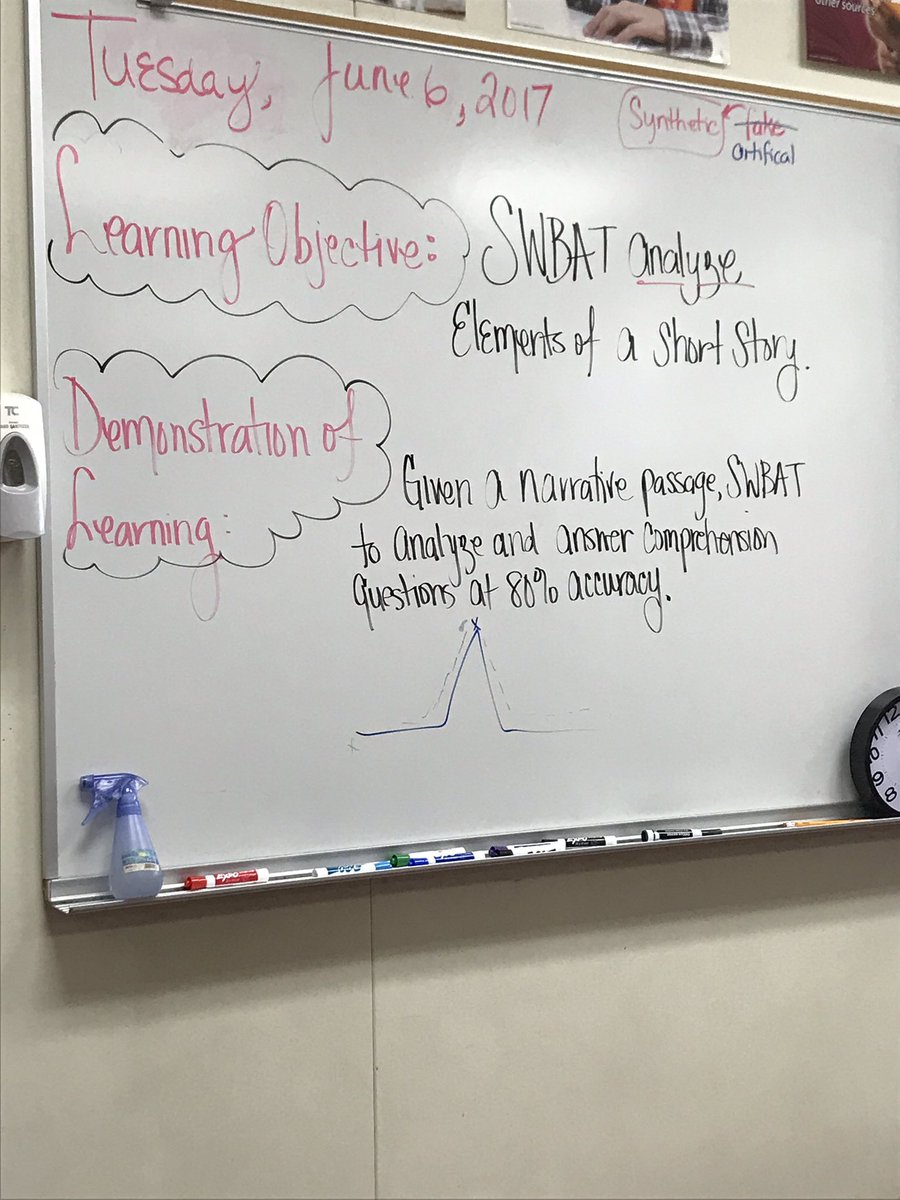 other sources
Tuesday, June 6, 2017
Synthetic fake
artifical
Learning Objective: SWBAT analyze,
Elements of a Short Story.
Demonstration of
Learning:
Given a narrative passage, SWBAT
to analyze and answer comprehension
Questions at 80% accuracy.
TC
12
11
10
9
8
EXPO
EXPO